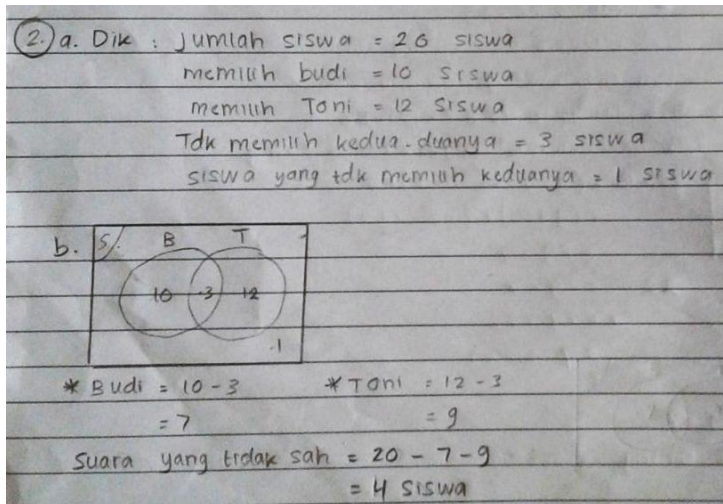 2. a. Dik : Jumlah siswa = 20 siswa
memilih budi = 10 siswa
memilih Toni = 12 siswa
Tdk memilih kedua-duanya = 3 siswa
siswa yang tdk memilih keduanya = 1 siswa
b. S B T
10 3 12
.1
* Budi = 10 - 3 * Toni = 12 - 3
= 7 = 9
Suara yang tidak sah = 20 - 7 - 9
= 4 siswa